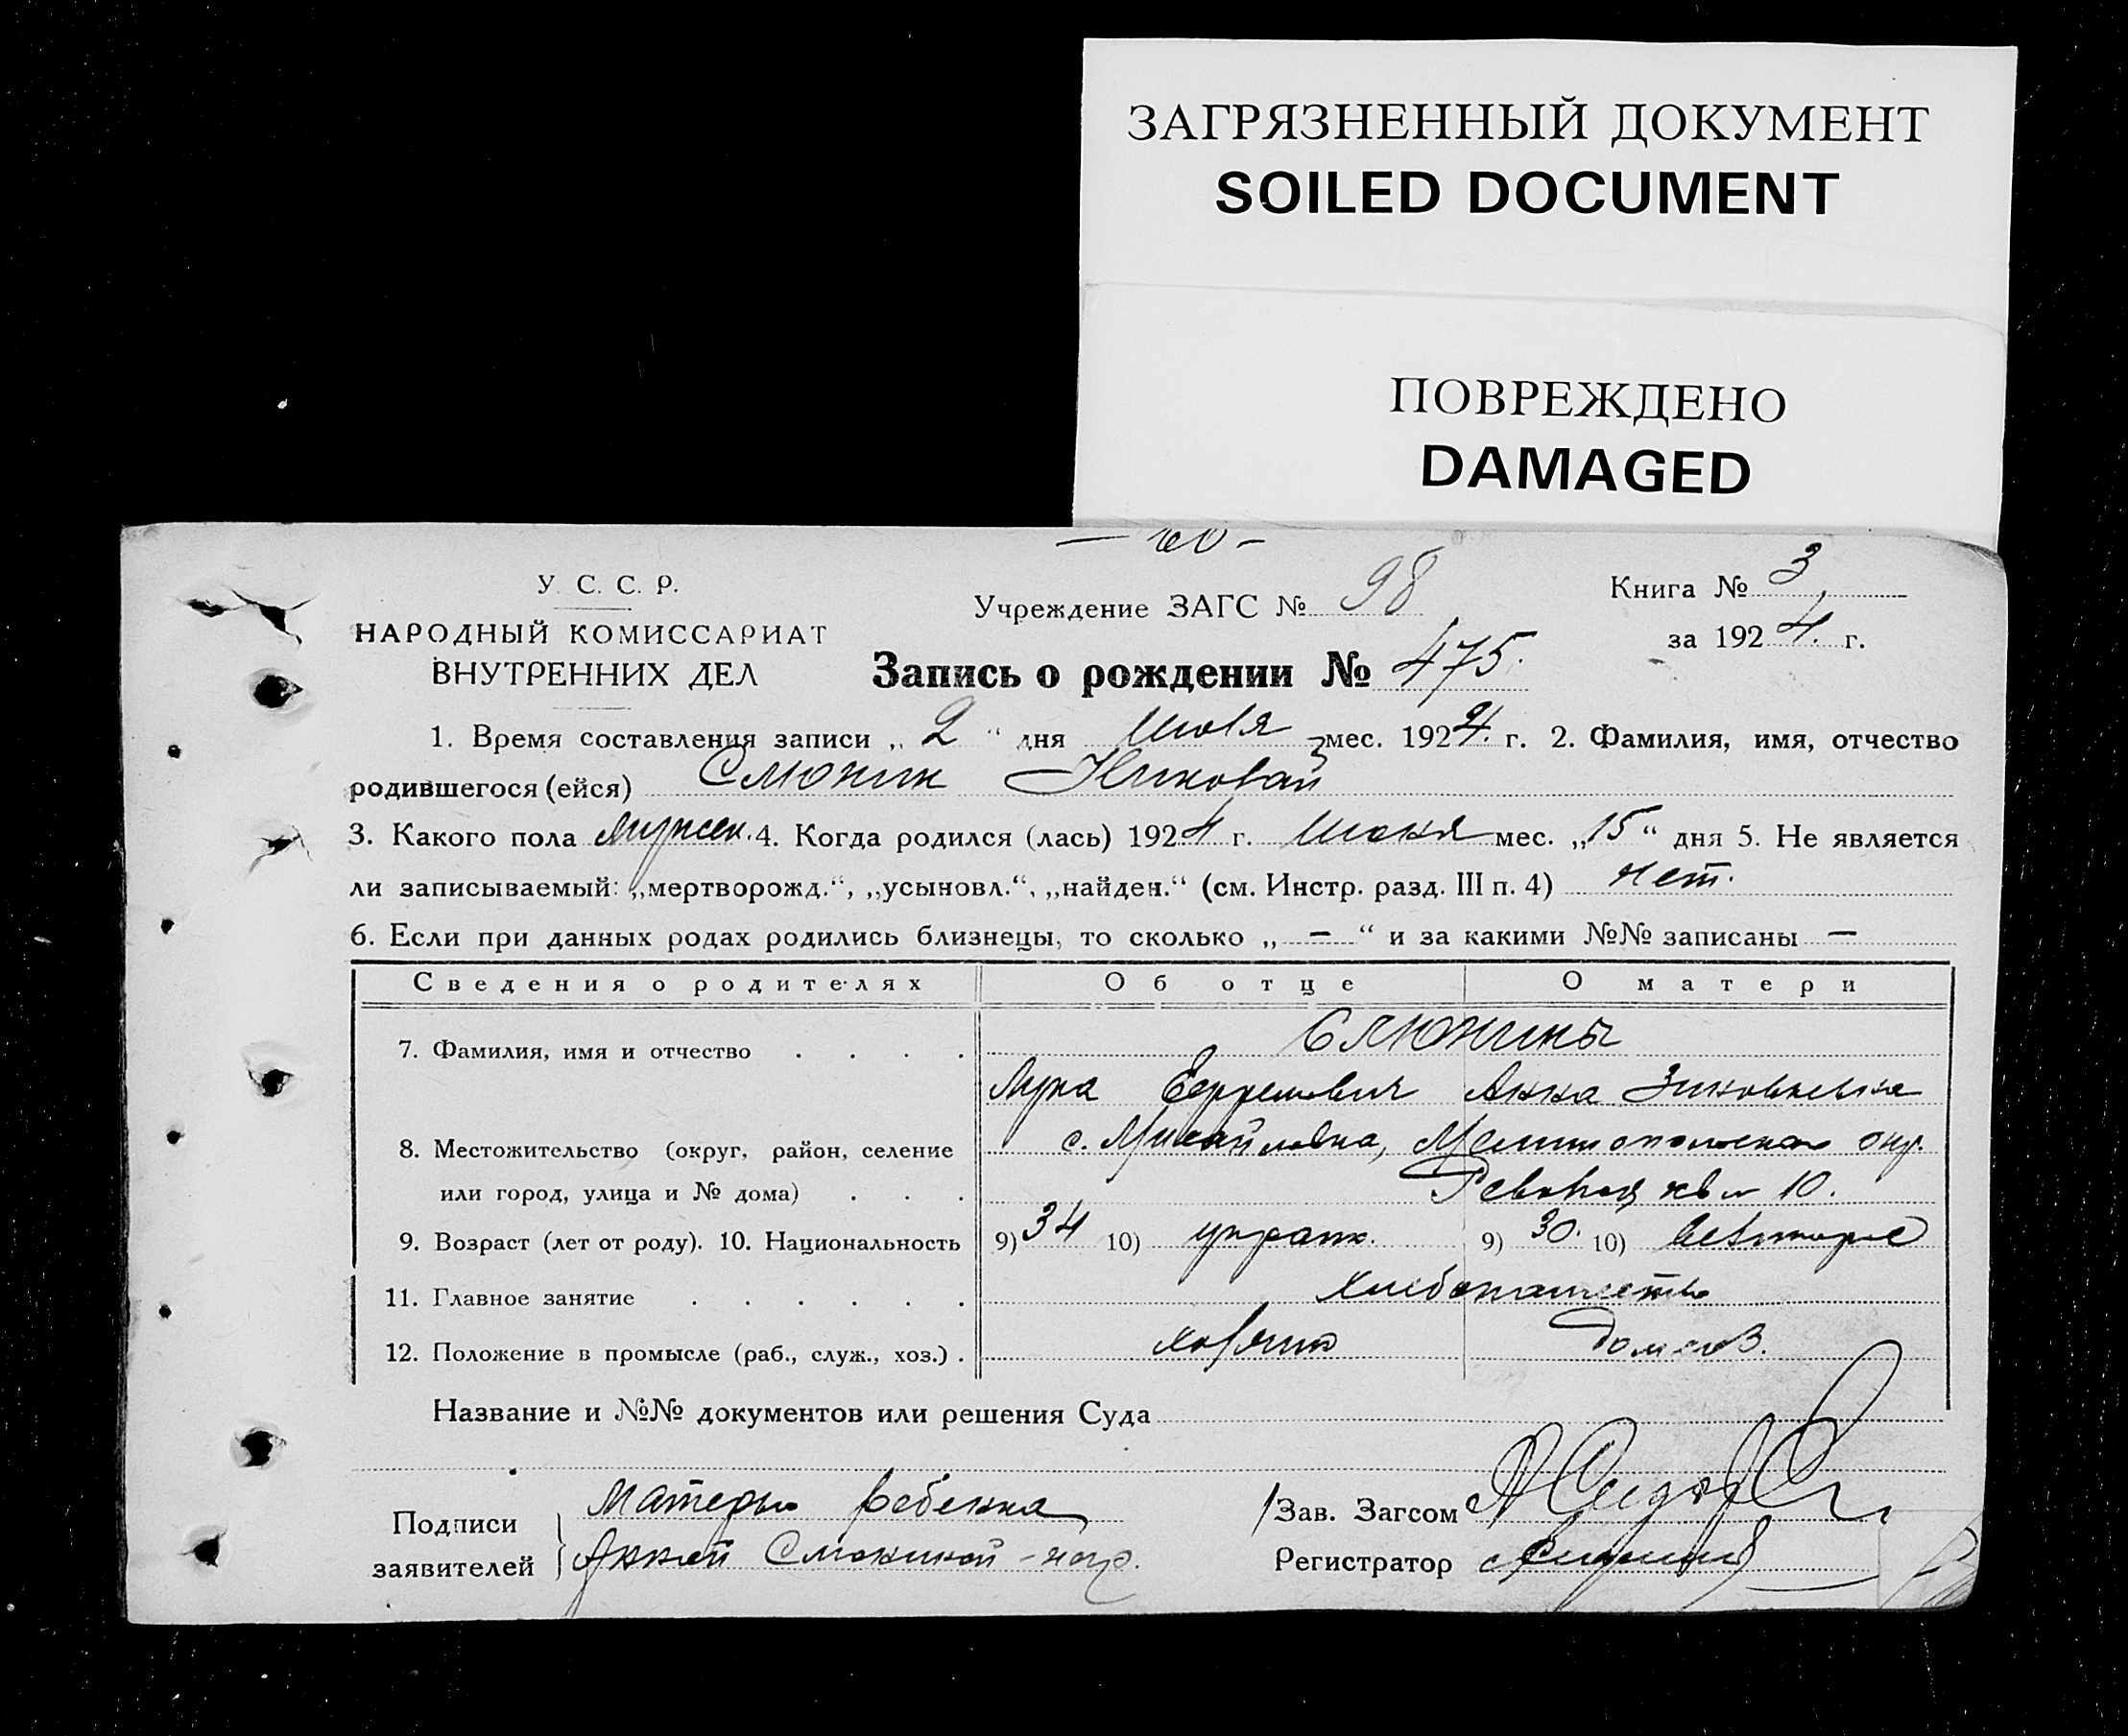 ЗАГРЯЗНЕННЫЙ ДОКУМЕНТ
SOILED DOCUMENT
ПОВРЕЖДЕНО
DAMAGED
У. С. С. Р.
НАРОДНЫЙ КОМИССАРИАТ
ВНУТРЕННИХ ДЕЛ
Учреждение ЗАГС № 98
Книга № 3
за 1924. г.
Запись о рождении № 475.
1. Время составления записи „ 2 “ дня Июля мес. 1924. г. 2. Фамилия, имя, отчество
родившегося (ейся) Слюник Николай
3. Какого пола мужск. 4. Когда родился (лась) 1924 г. Июня мес. „15“ дня 5. Не является
ли записываемый: „мертворожд.“, „усыновл.“, „найден.“ (см. Инстр. разд. III п. 4) нет.
6. Если при данных родах родились близнецы, то сколько „ – “ и за какими №№ записаны –
Сведения о родителях Об отце О матери
7. Фамилия, имя и отчество . . . .
Слюнины
Лука Ефремович Анна Зиновьевна
8. Местожительство (округ, район, селение с. Михайловка, Мелитопольского окр.
или город, улица и № дома) . . . 10.
9. Возраст (лет от роду). 10. Национальность 9) 34 10) украин. 9) 30. 10)
11. Главное занятие . . . . . . хлебопашество
12. Положение в промысле (раб., служ., хоз.) . хозяин домохоз.
Название и №№ документов или решения Суда
Подписи
заявителей
Матерью ребенка
Анной Слюниной
Зав. Загсом
Регистратор